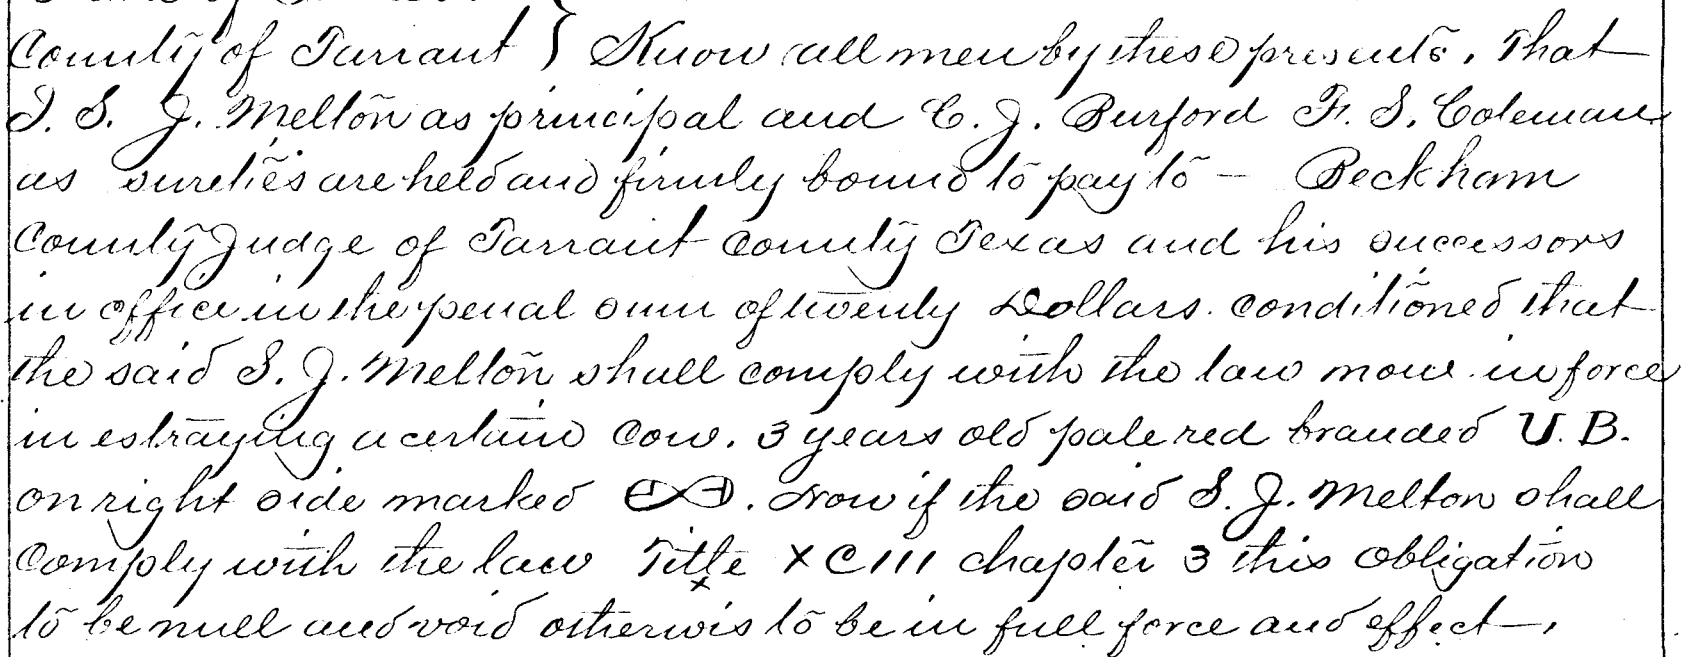 County of Tarrant } Know all men by these presents, That
I. S. J. Melton as principal and C. J. Burford F. S. Coleman
as sureties are held and firmly bound to pay to — Beckham
County Judge of Tarrant County Texas and his successors
in office in the penal sum of twenty Dollars. conditioned that
the said S. J. Melton shall comply with the law now in force
in estraying a certain Cow. 3 years old pale red branded U. B.
on right side marked . Now if the said S. J. Melton shall
Comply with the law Title XCIII chapter 3 this obligation
to be null and void otherwis to be in full force and effect,